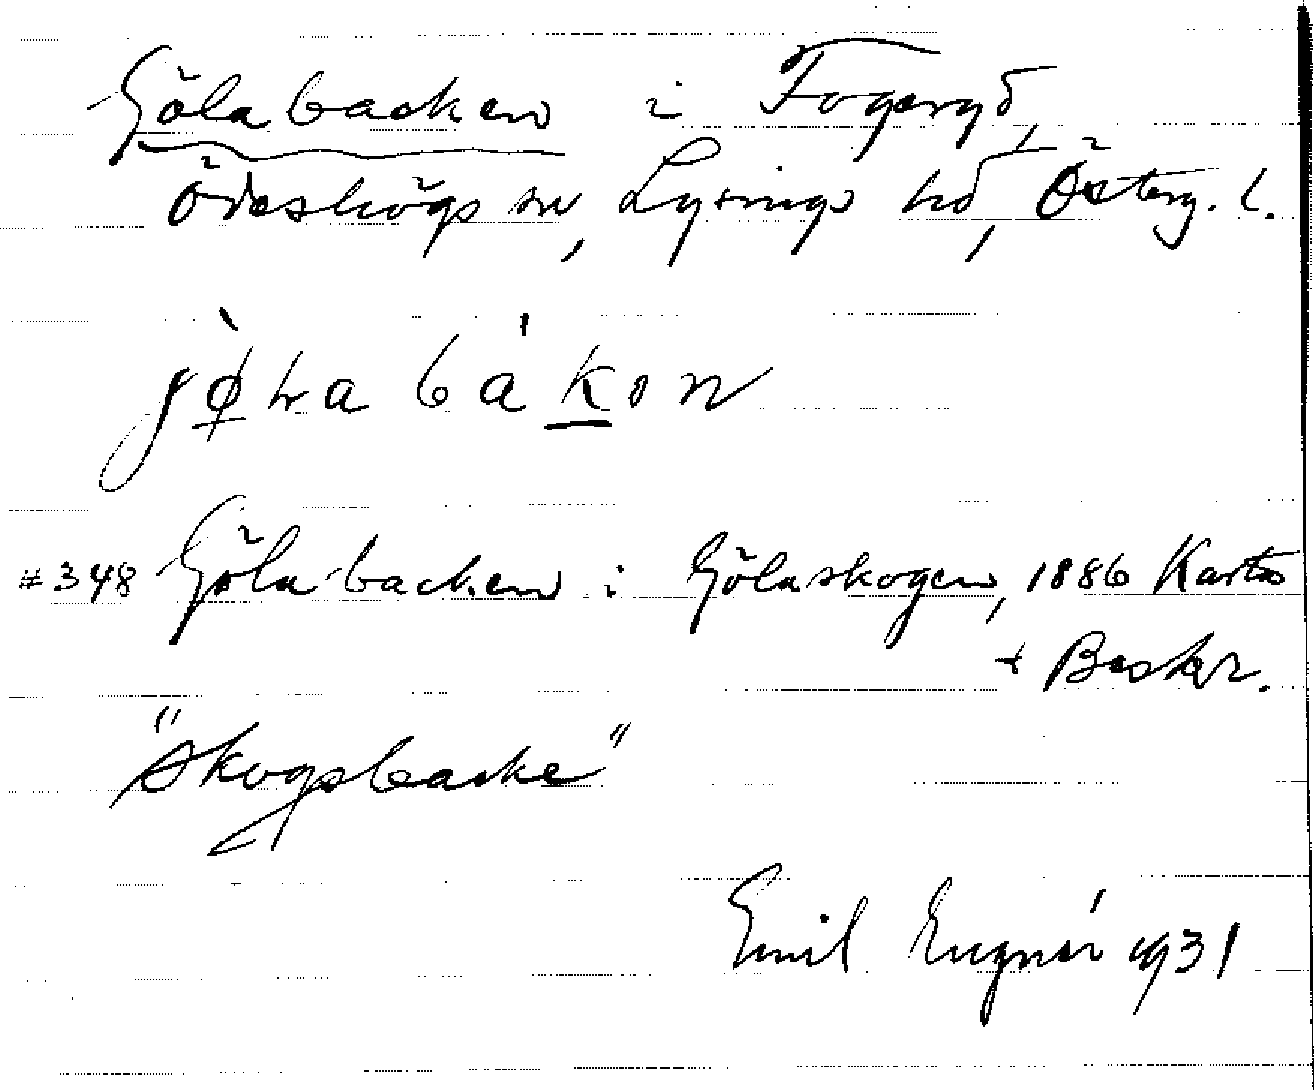 Gölabacken i Fogeryd,
Ödeshögs sn, Lysings hd, Österg. l.
jø̀ɫabákən
#348 Gölabacken i Gölaskogen, 1886 Karta
+ Beskr.
"Skogsbacke"
Emil Engnér 1931